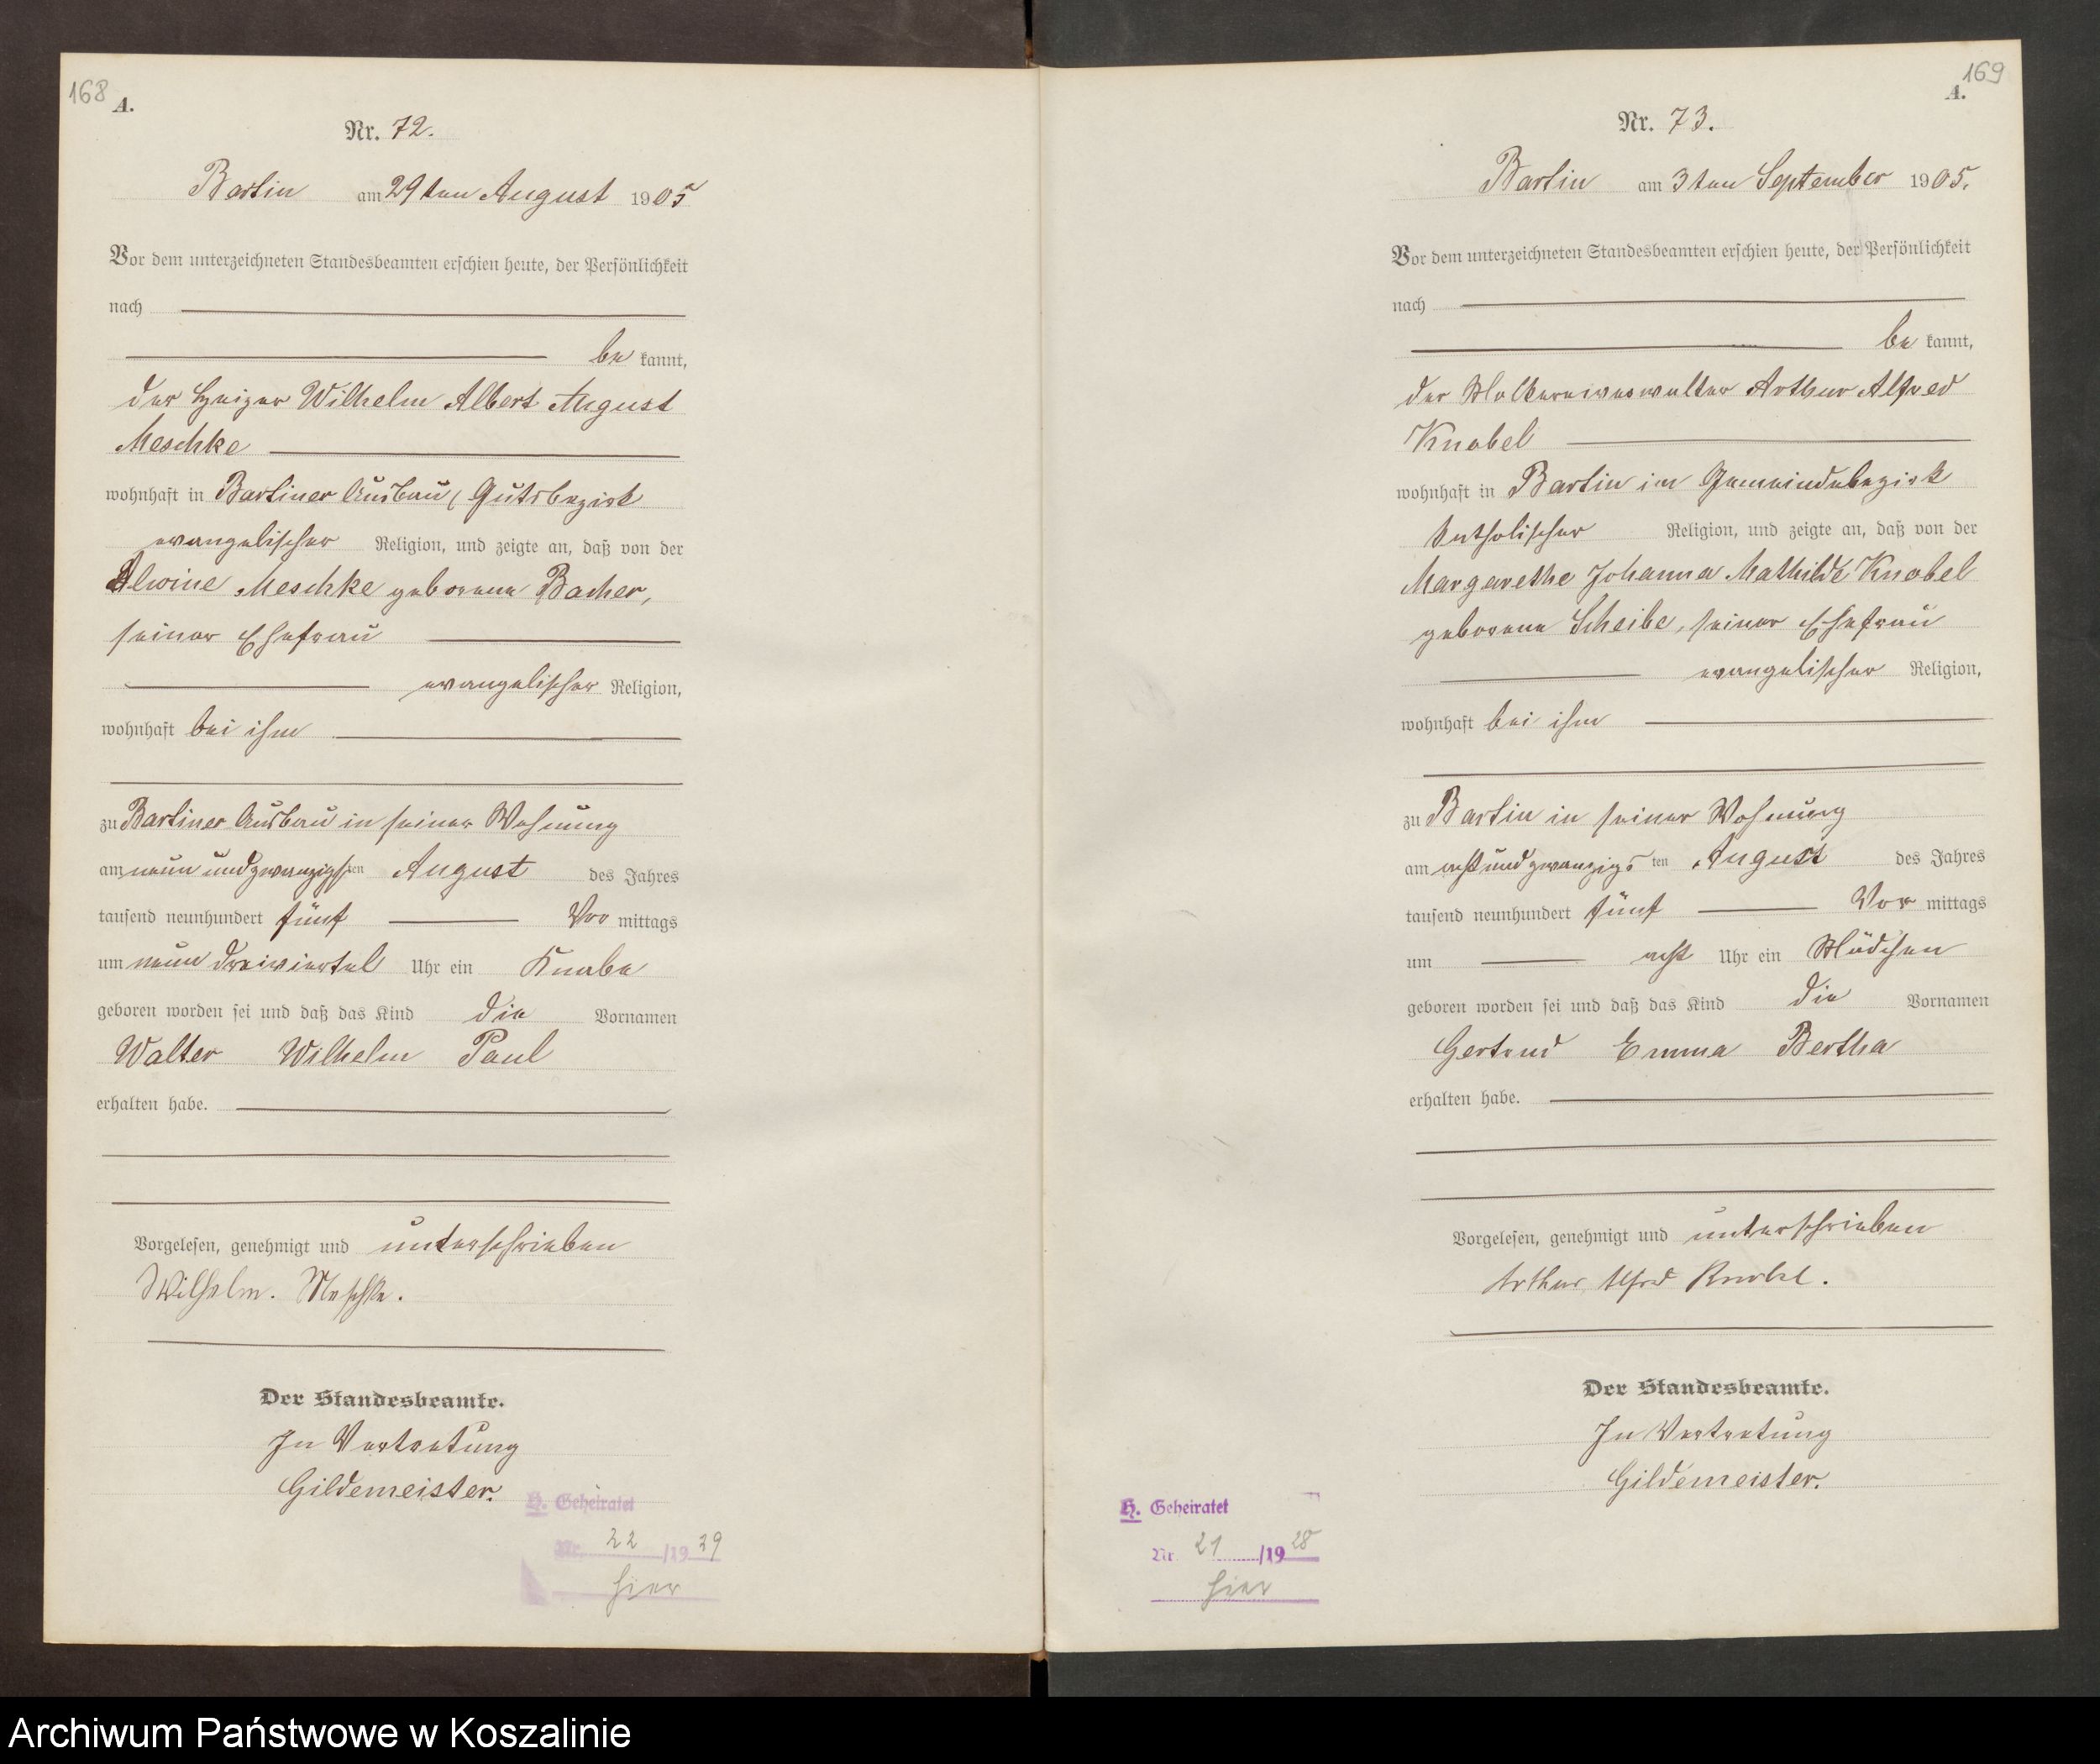 168
A.
Nr. 72.
Bartin am 29ten August 1905
Vor dem unterzeichneten Standesbeamten erschien heute, der Persönlichkeit
nach
be kannt,
der Heizer Wilhelm Albert August
Meschke
wohnhaft in Bartiner Ausbau, Gutsbezirk
evangelischer Religion, und zeigte an, daß von der
Alwine Meschke geborene Bacher,
seiner Ehefrau
evangelischer Religion,
wohnhaft bei ihm
zu Bartiner Ausbau in seiner Wohnung
am neun und zwanzigsten August des Jahres
tausend neunhundert fünf Vor mittags
um neun dreiviertel Uhr ein Knabe
geboren worden sei und daß das Kind die Vornamen
Walter Wilhelm Paul
erhalten habe.
Vorgelesen, genehmigt und unterschrieben
Wilhelm. Meschke.
Der Standesbeamte.
In Vertretung
Gildemeister.
H. Geheiratet
Nr. 22 /1929
hier
169
A.
Nr. 73.
Bartin am 3ten September 1905.
Vor dem unterzeichneten Standesbeamten erschien heute, der Persönlichkeit
nach
be kannt,
der Molkereiverwalter Arthur Alfred
Knobel
wohnhaft in Bartin im Gemeindebezirk
katholischer Religion, und zeigte an, daß von der
Margarethe Johanna Mathilde Knobel
geborene Scheibe, seiner Ehefrau
evangelischer Religion,
wohnhaft bei ihm
zu Bartin in seiner Wohnung
am acht und zwanzigs ten August des Jahres
tausend neunhundert fünf Vor mittags
um acht Uhr ein Mädchen
geboren worden sei und daß das Kind die Vornamen
Gertrud Emma Bertha
erhalten habe.
Vorgelesen, genehmigt und unterschrieben
Arthur Alfred Knobel.
Der Standesbeamte.
In Vertretung
Gildemeister.
H. Geheiratet
Nr 21 /1928
hier
Archiwum Państwowe w Koszalinie